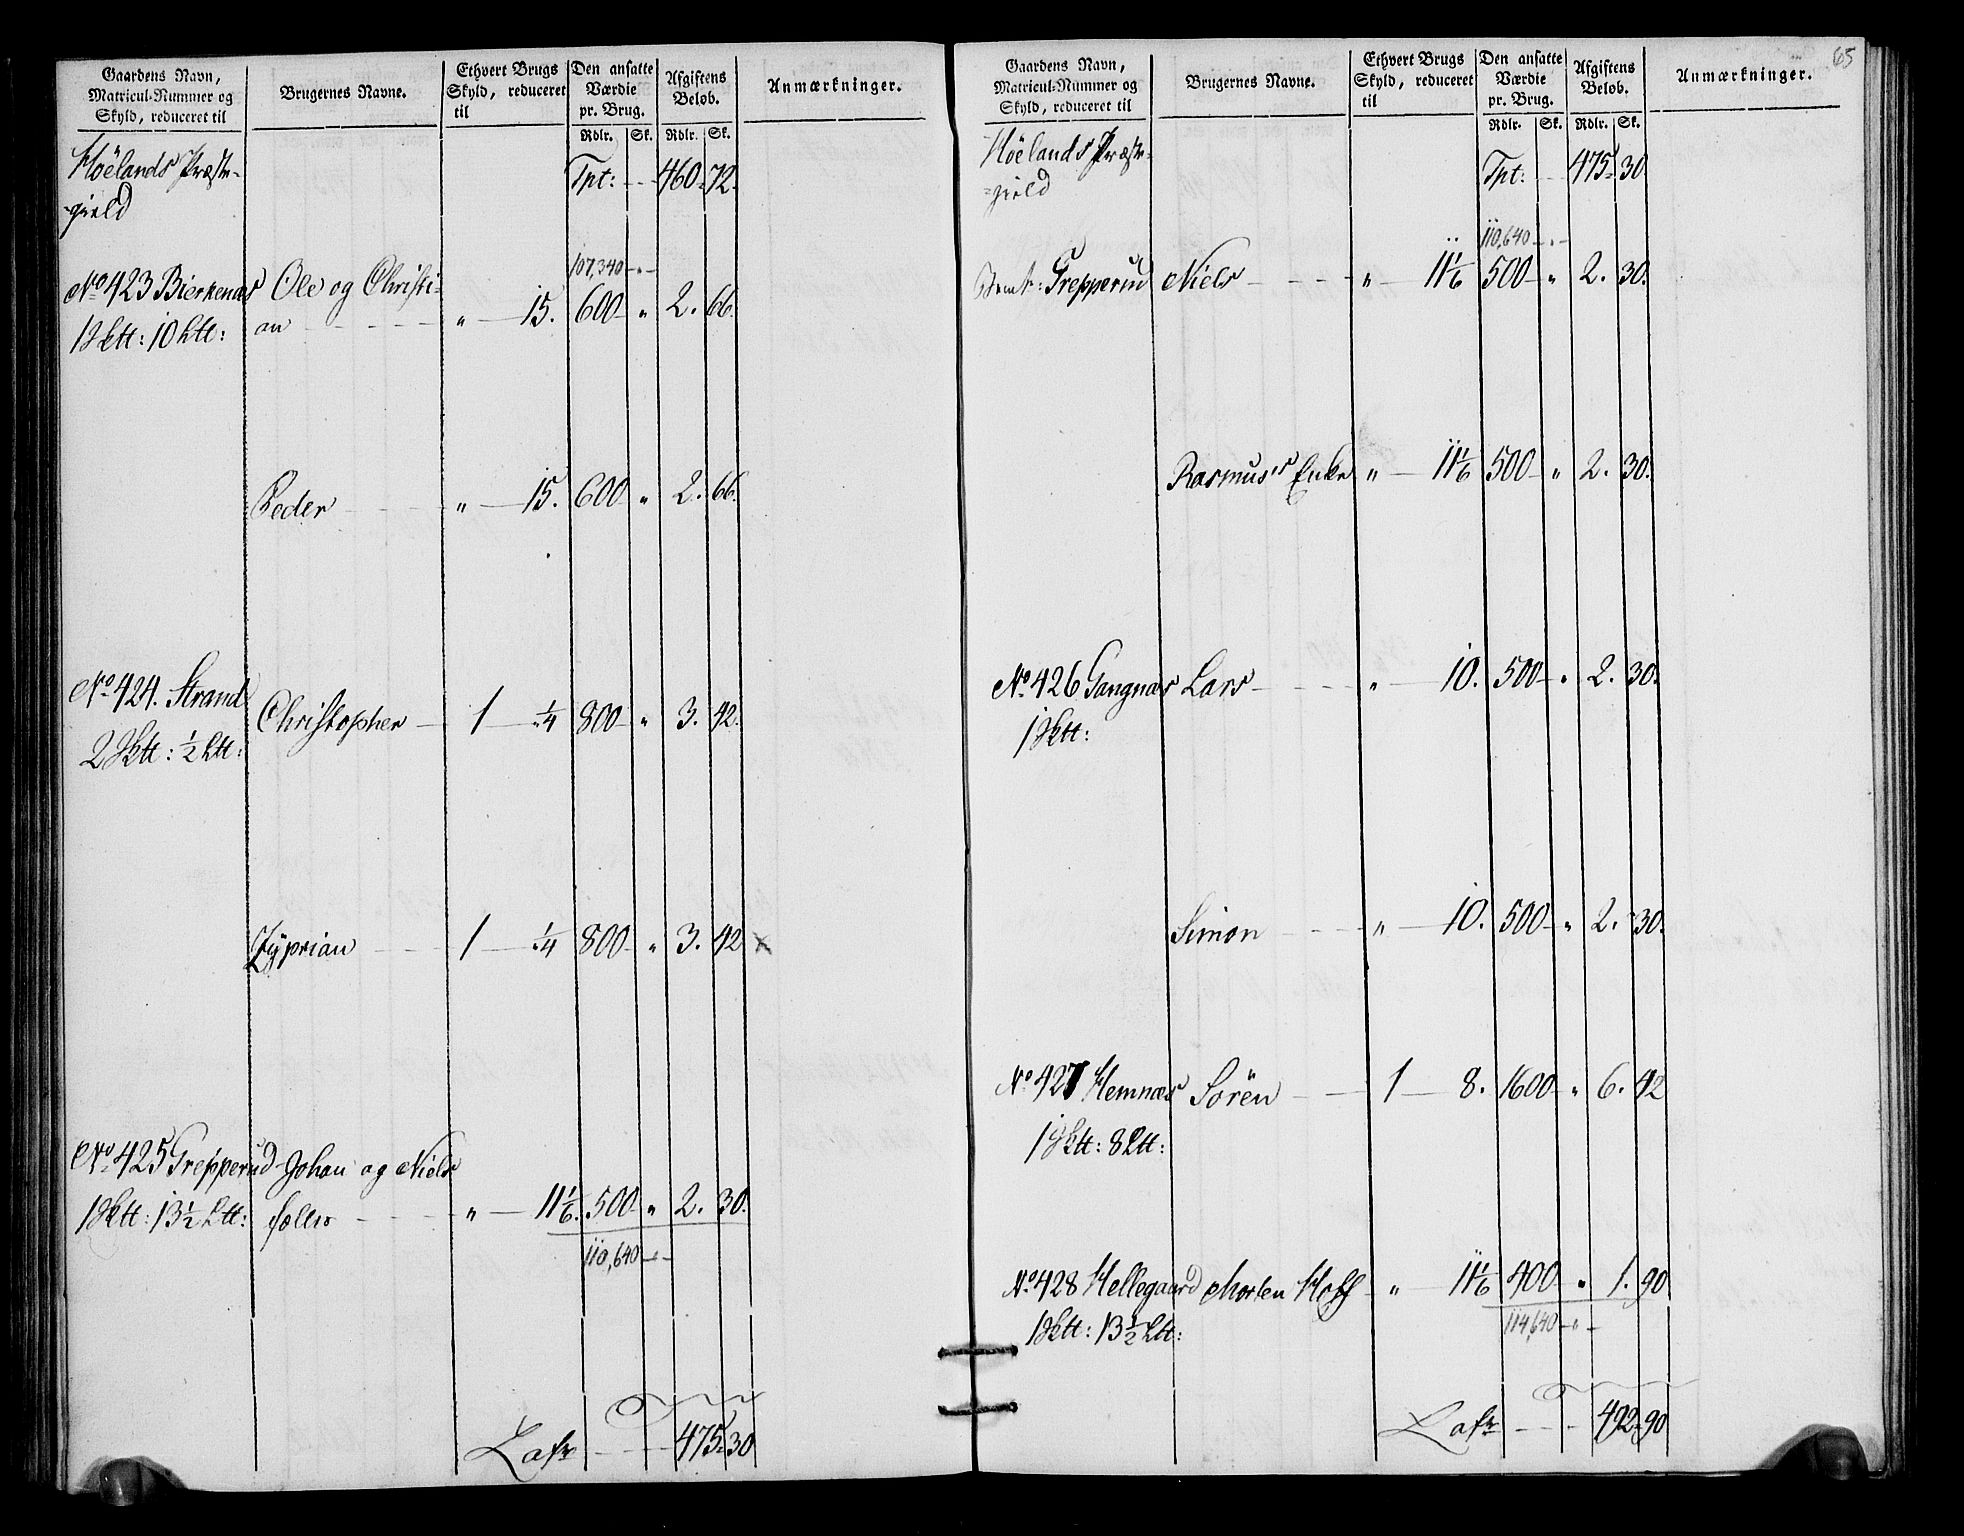 Gaardens Navn, Matricul-Nummer og Skyld, reduceret til
Brugernes Navne.
Ethvert Brugs Skyld, reduceret til
Den ansatte Værdie pr. Brug.
Rdlr. Sk.
Afgiftens Beløb.
Rdlr. Sk.
Anmærkninger.
Höelands Præste- Tpt: - - 460 - 72.
gield
107,340 - " -
No 423 Bierkenæs Ole og Christi-
1 Sktt: 10 Ltt: an - - - - - " - 15. 600 - " 2. 66.
Peder - - - - " - 15. 600 - " 2. 66.
No 424. Strand Christopher - 1 - 1/4 800 - " 3. 42.
2 Sktt: 1/2 Ltt:
Zyprian - - - 1 - 1/4 800 - " 3. 42 x
No 425 Grepperud Johan og Niels
1 Sktt: 13 1/2 Ltt: fælles - - - - " - 11 1/6. 500 - " 2. 30.
110,640 - " -
Lafr - - - 475 - 30
65
Gaardens Navn, Matricul-Nummer og Skyld, reduceret til
Brugernes Navne.
Ethvert Brugs Skyld, reduceret til
Den ansatte Værdie pr. Brug.
Rdlr. Sk.
Afgiftens Beløb.
Rdlr. Sk.
Anmærkninger.
Höelands Præste- Tpt: - - 475 - 30
-gield
110,640 - " -
Grepperud Niels - - - - - " - 11 1/6 500 - " 2. 30.
Rasmus's Enke " - 11 1/6 500 - " 2. 30.
No 426 Gangnæs Lars - - - - " - 10. 500 - " 2. 30.
1 Sktt:
Simon - - - - " - 10. 500 - " 2. 30.
No 427 Hemnæs Sören - - - 1 - 8. 1600 - " 6. 42
1 Sktt: 8 Ltt:
No 428 Hellegaard Morten Hoff - " - 11 1/6 400 - " 1. 90
1 Sktt: 13 1/2 Ltt: 114,640 - " -
Lafr - - - 492 - 90